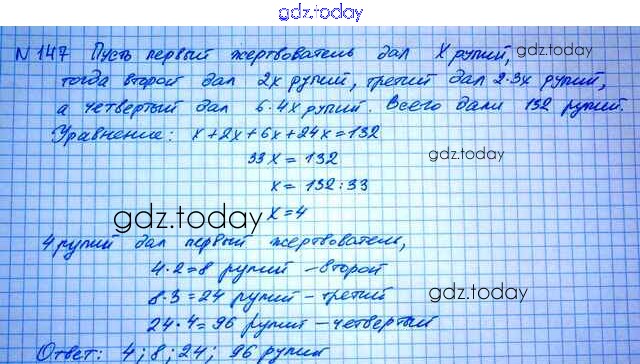 gdz.today
N 147 Пусть первый жертвователь дал x рупий, gdz.today
тогда второй дал 2x рупий, третий дал 2·3x рупий,
а четвертый дал 6·4x рупий. Всего дали 132 рупий.
Уравнение: x+2x+6x+24x=132
33x = 132 gdz.today
x = 132:33
gdz.today x=4
4 рупий дал первый жертвователь,
4·2=8 рупий – второй
8·3=24 рупий – третий gdz.today
24·4=96 рупий – четвертый
Ответ: 4; 8; 24; 96 рупий